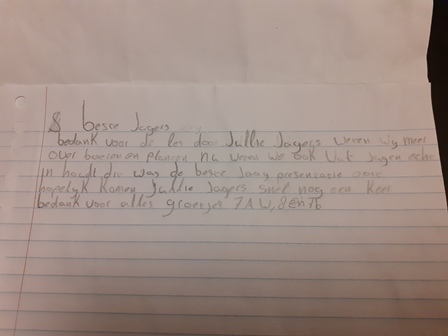 beste Jagers
bedank voor de les door Jullie Jagers weren wij meer
over boeren en planzen na weren we ook Wat Jagen echt
in houdt die was de beste Jaag presentatie ooit
hopelyk komen Jullie Jagers snel nog een keer
bedank voor alles groetjes 7A W,8